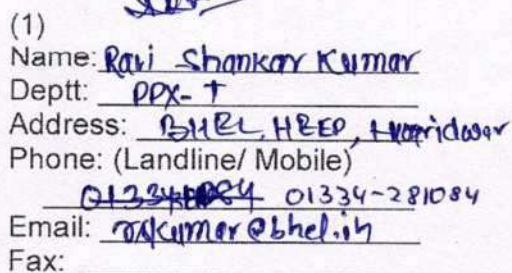 (1)
Name: Ravi Shankar Kumar
Deptt: PPX-T
Address: BHEL, HEEP, Haridwar
Phone: (Landline/ Mobile)
01334-281084
Email: rskumar@bhel.in
Fax: